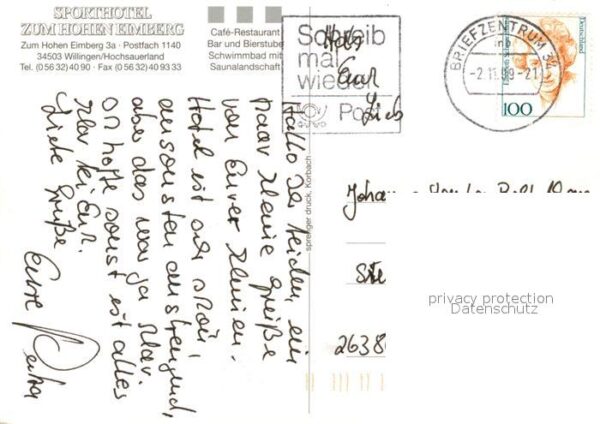 SPORTHOTEL
ZUM HOHEN EIMBERG
Zum Hohen Eimberg 3a · Postfach 1140
34503 Willingen/Hochsauerland
Tel. (0 56 32) 40 90 · Fax (0 56 32) 40 93 33
Café-Restaurant
Bar und Bierstube
Schwimmbad mit
Saunalandschaft
Schreib
mal
wieder
Post
Hab
Euch
Lieb
BRIEFZENTRUM 34
-2.11.99-21
Deutschland
100
Hallo Ihr beiden, ein
paar kleine Grüße
von Eurer kleinen.
Hotel ist sehr schön,
ansonsten anstrengend,
aber das war ja klar.
Ich hoffe sonst ist alles
klar bei Euch.
Liebe Grüße
Eure
sprenger druck, Korbach
2638
privacy protection
Datenschutz